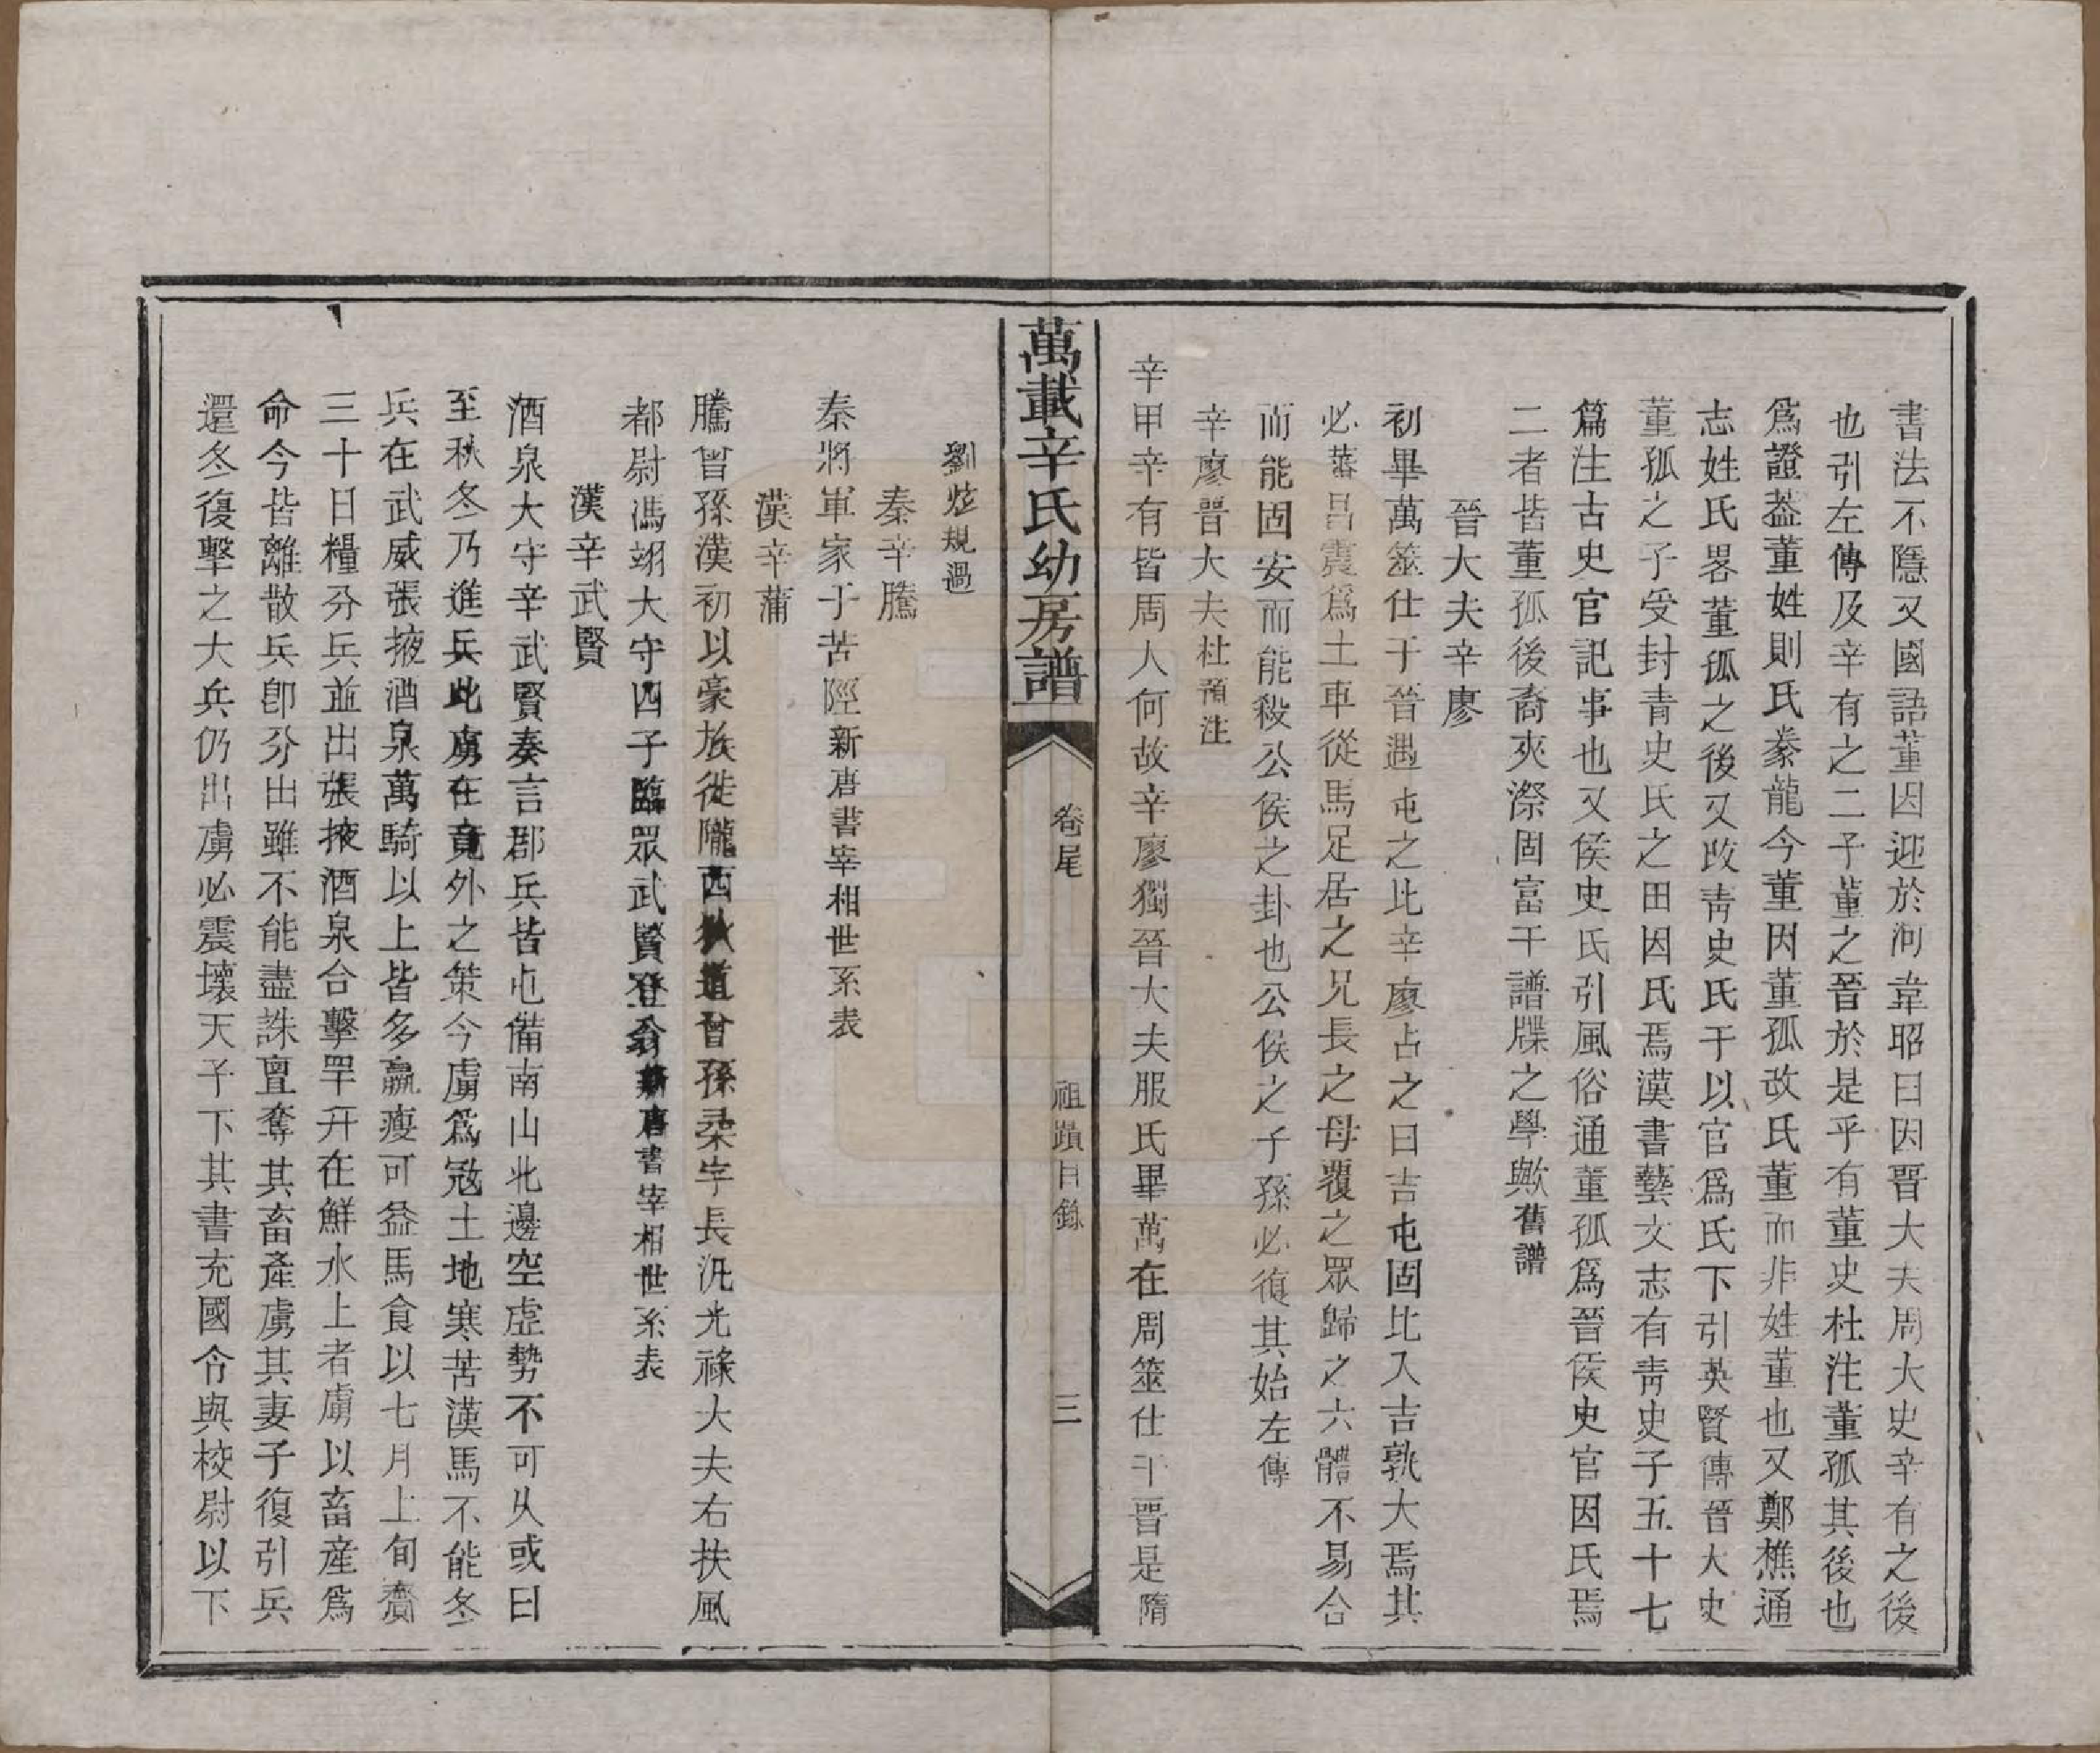 書法不隱又國語董因迎於河韋昭曰因晉大夫周大史辛有之後
也引左傳及辛有之二子董之晉於是乎有董史杜注董孤其後也
爲證葢董姓則氏豢龍今董因董孤改氏董而非姓董也又鄭樵通
志姓氏畧董孤之後又改靑史氏于以官爲氏下引英賢傳晉大史
董孤之子受封青史氏之田因氏焉漢書藝文志有靑史子五十七
篇注古史官記事也又侯史氏引風俗通董孤爲晉侯史官因氏焉
二者皆董孤後裔夾漈固富于譜牒之學歟舊譜
晉大夫辛廖
初畢萬筮仕于晉遇屯之比辛廖占之曰吉屯固比入吉孰大焉其
必蕃昌震爲土車從馬足居之兄長之母覆之眾歸之六體不易合
而能固安而能殺公侯之卦也公侯之子孫必復其始左傳
辛廖晉大夫杜預注
辛甲辛有皆周人何故辛廖獨晉大夫服氏畢萬在周筮仕于晉是隋
萬載辛氏幼房譜
卷尾
祖蹟目錄
三
劉炫規過
秦辛騰
秦將軍家于苦陘新唐書宰相世系表
漢辛蒲
騰曾孫漢初以豪族徙隴西狄道曾孫柔字長汎光祿大夫右扶風
都尉馮翊大守四子臨眾武賢登翁新唐書宰相世系表
漢辛武賢
酒泉大守辛武賢奏言郡兵皆屯備南山北邊空虛勢不可久或曰
至秋冬乃進兵此虜在竟外之策今虜爲冦土地寒苦漢馬不能冬
兵在武威張掖酒泉萬騎以上皆多羸瘦可益馬食以七月上旬齎
三十日糧分兵並出張掖酒泉合擊罕幵在鮮水上者虜以畜產爲
命今皆離散兵卽分出雖不能盡誅亶奪其畜產虜其妻子復引兵
還冬復擊之大兵仍出虜必震壞天子下其書充國令與校尉以下